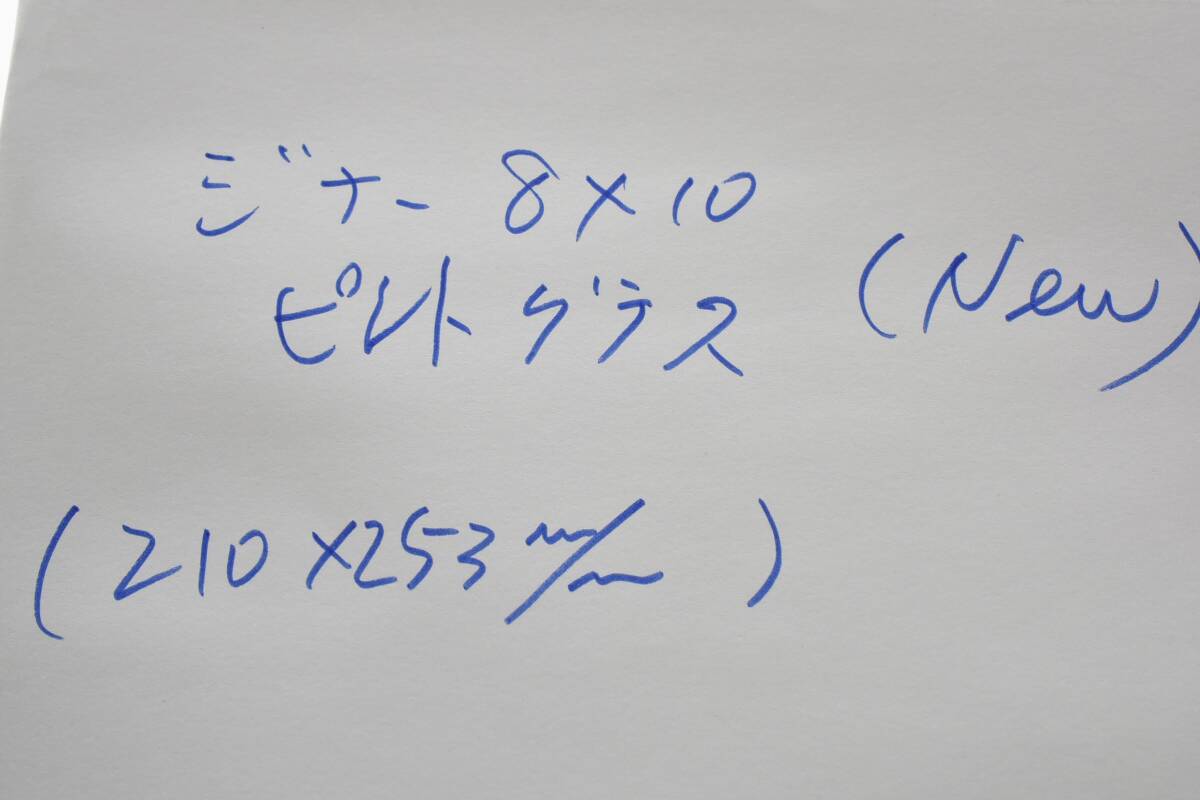 ジナー 8×10
ピントグラス (New)
(210×253 m/m)